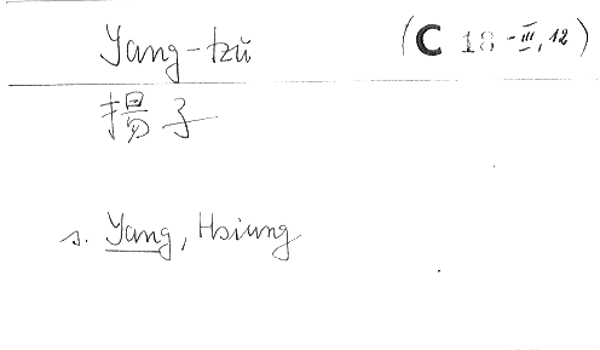 Yang-tzŭ (C 18 -III, 12)
揚子
s. Yang, Hsiung